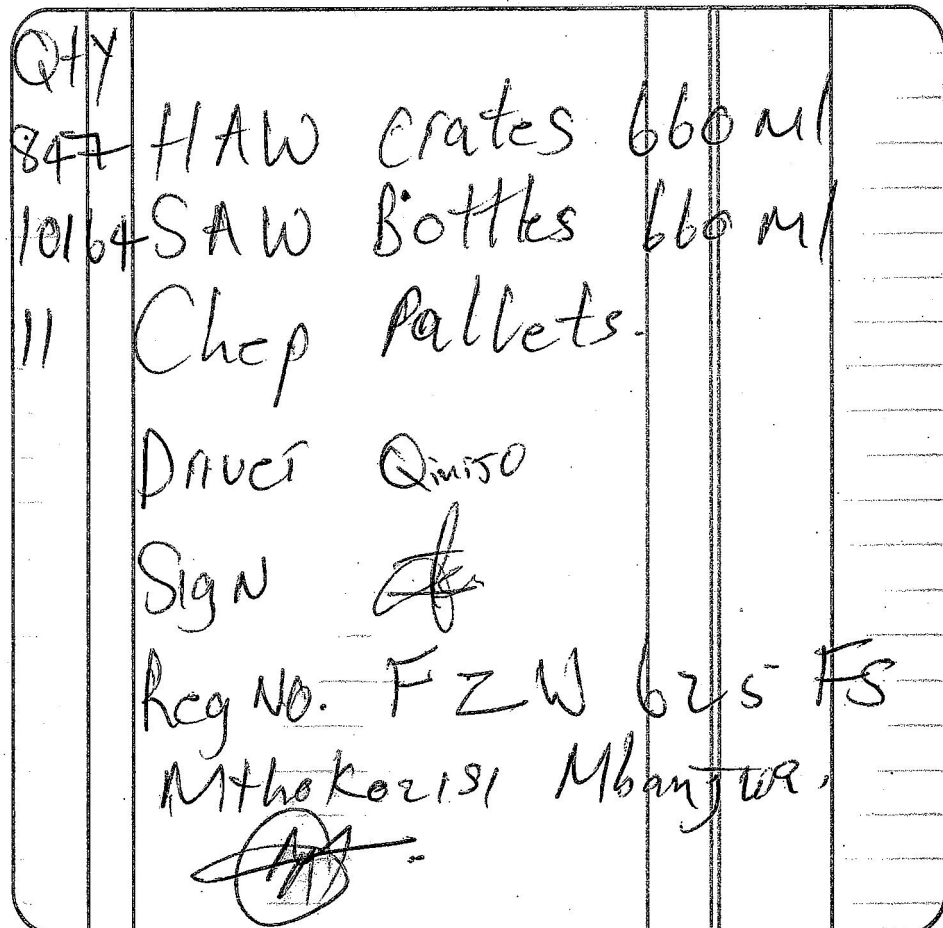 Qty
847 HAW crates 660 Ml
10164 SAW Bottles 660 Ml
11 Chep Pallets.
Driver Qiniso
Sign
Reg No. FZW 625 FS
Mthokozisi Mbanjwa.